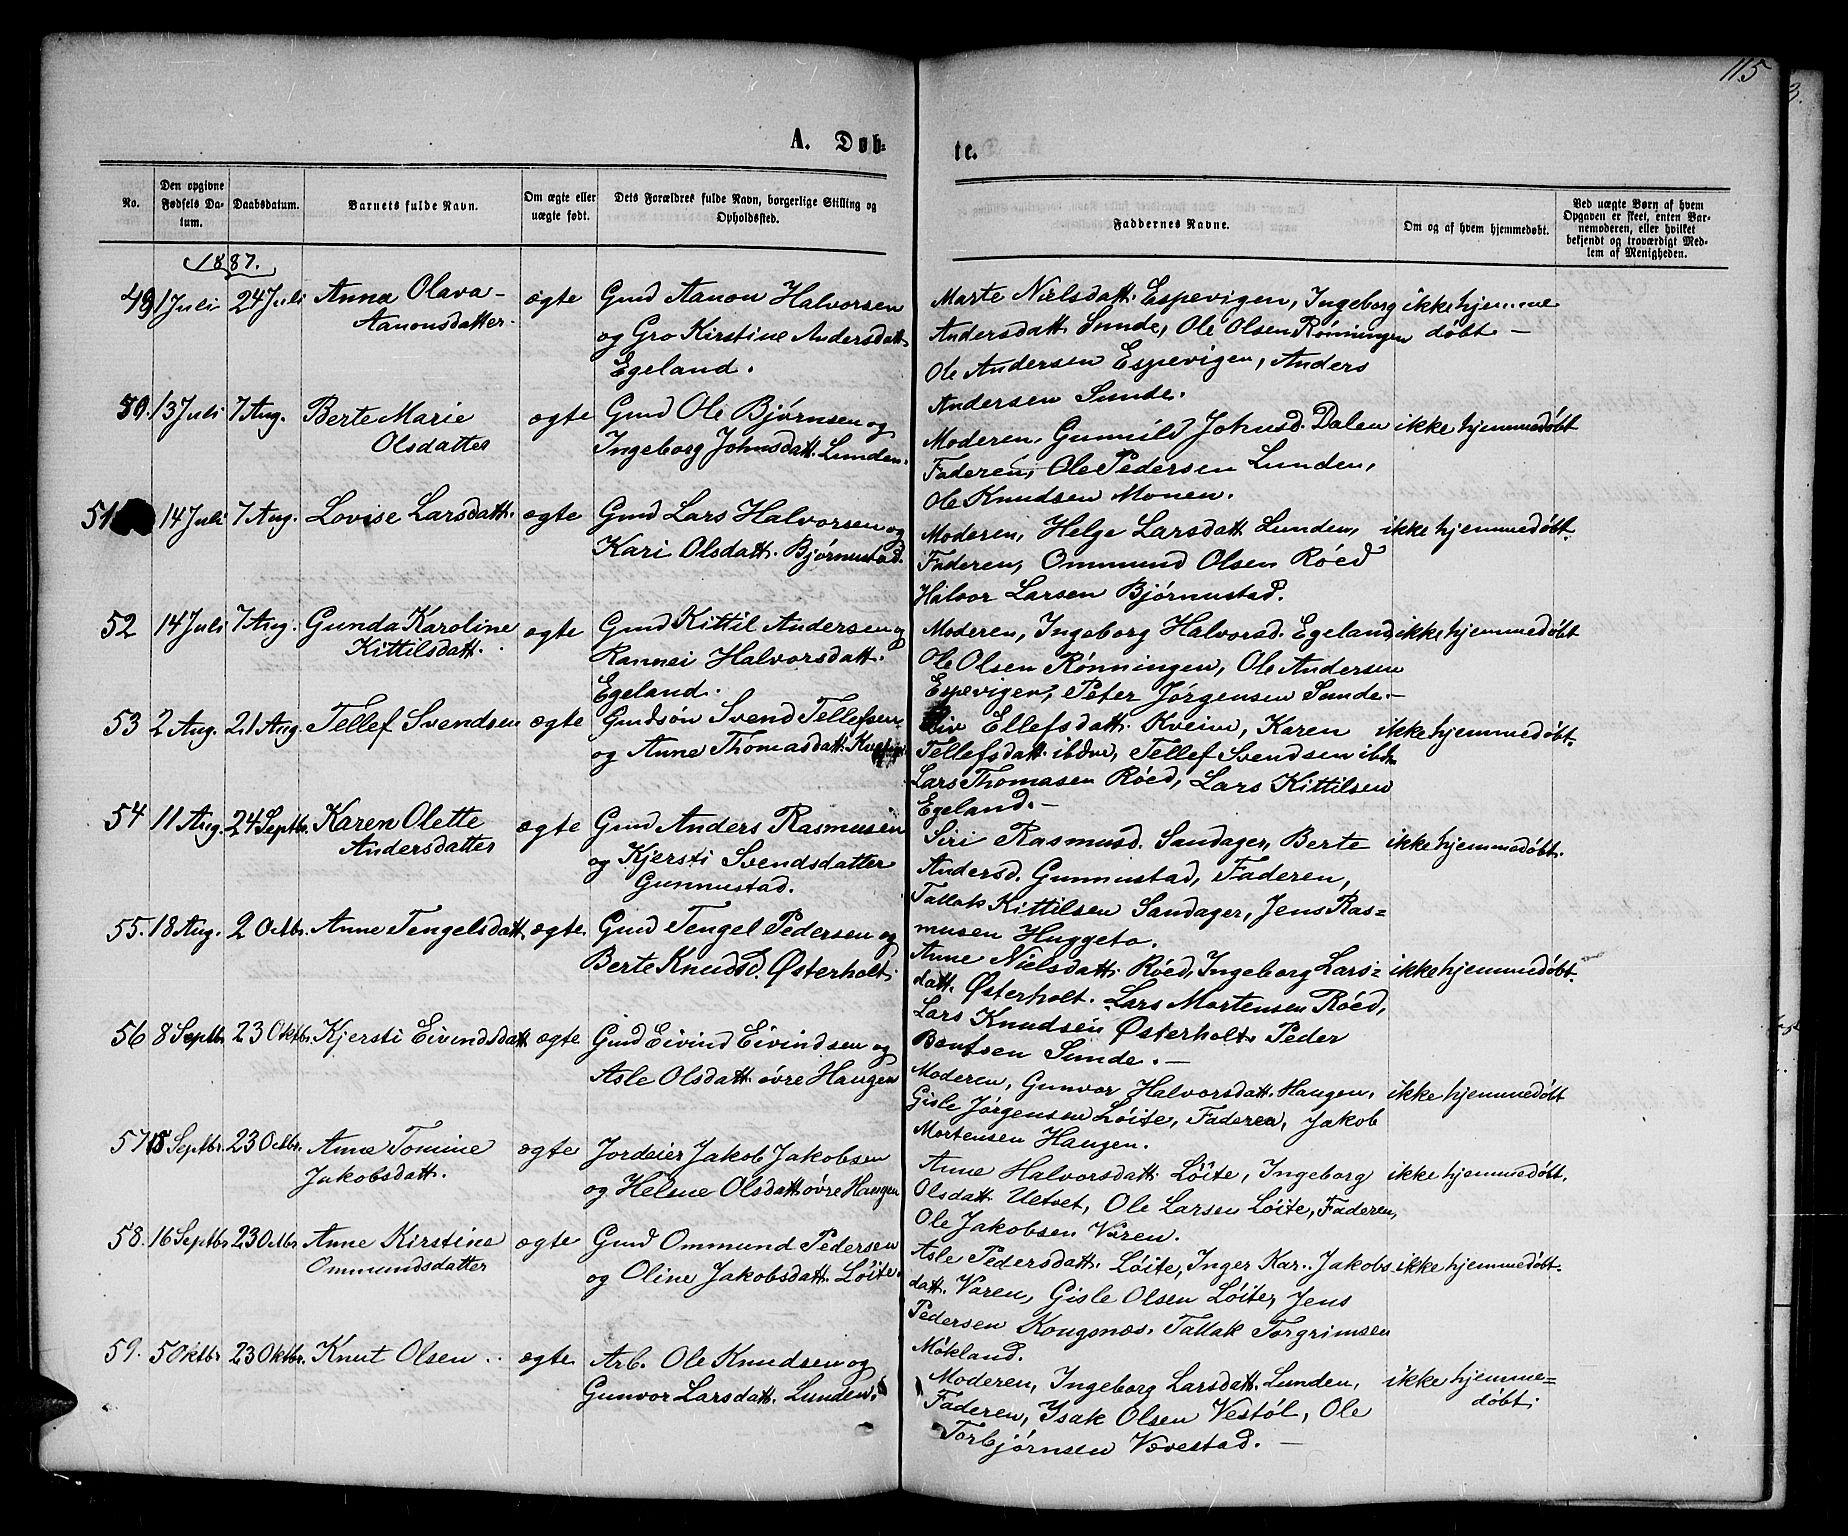 115
A. Døb-
te.
No.
Den opgivne Fødsels Datum.
Daabsdatum.
Barnets fulde Navn.
Om ægte eller uægte født.
Dets Forældres fulde Navn, borgerlige Stilling og Opholdssted.
Faddernes Navne.
Om og af hvem hjemmedøbt.
Ved uægte Børn af hvem Opgaven er skeet, enten Barnemoderen, eller hvilket bekjendt og troværdigt Medlem af Menigheden.
1887.
49 1 Juli 24 Juli Anna Olava
Aanonsdatter.
ægte
Gmd Aanon Halvorsen
og Gro Kirstine Andersdatt.
Egeland.
Marte Nielsdatt. Espevigen, Ingeborg
Andersdatt. Sunde, Ole Olsen Rønningen
Ole Andersen Espevigen, Anders
Andersen Sunde.
ikke hjemme
døbt —
50. 13 Juli 7 Aug. Berte Marie
Olsdatter
ægte
Gmd Ole Bjørnsen og
Ingeborg Johnsdatt. Lunden.
Moderen, Gunnild Johnsd. Dalen
Faderen, Ole Pedersen Lunden,
Ole Knudsen Monen.
ikke hjemmedøbt
51 14 Juli 7 Aug. Lovise Larsdatt.
ægte
Gmd Lars Halvorsen og
Kari Olsdatt. Bjørnustad.
Moderen, Helge Larsdatt. Lunden,
Faderen, Ommund Olsen Røed
Halvor Larsen Bjørnustad.
ikke hjemmedøbt.
52 14 Juli 7 Aug. Gunda Karoline
Kittilsdatt.
ægte
Gmd Kittil Andersen og
Rannei Halvorsdatt.
Egeland.
Moderen, Ingeborg Halvorsd. Egeland,
Ole Olsen Rønningen, Ole Andersen
Espevigen, Peter Jørgensen Sunde.—
ikke hjemmedøbt
53 2 Aug. 21 Aug. Tellef Svendsen
ægte
Gmdsøn Svend Tellefsen
og Anne Thomasdatt.
Liv Ellefsdatt. Kveim, Karen
Tellefsdatt. ibdm, Tellef Svendsen ibdm
Lars Thomasen Røed, Lars Kittilsen
Egeland.—
ikke hjemmedøbt.
54 11 Aug. 24 Septbr. Karen Olette
Andersdatter
ægte
Gmd Anders Rasmusen
og Kjersti Svendsdatter
Gunnustad.
Siri Rasmusd. Sandager, Berte
Andersd. Gunnustad, Faderen,
Tallak Kittilsen Sandager, Jens Ras=
musen Huggeto.
ikke hjemmedøbt.
55. 18 Aug. 2 Octbr. Anne Tengelsdatt.
ægte.
Gmd Tengel Pedersen og
Berte Knudsd. Østerholt.
Anne Nielsdatt. Røed, Ingeborg Lars=
datt. Østerholt. Lars Mortensen Røed,
Lars Knudsen Østerholt. Peder
Bentsen Sunde.—
ikke hjemmedøbt.
56 8 Septbr 23 Oktbr. Kjersti Eivindsdatt.
ægte
Gmd Eivind Eivindsen og
Asle Olsdatt. øvre Haugen
Moderen, Gunvor Halvorsdatt. Haugen,
Gisle Jørgensen Løite, Faderen, Jakob
Mortensen Haugen.
ikke hjemmedøbt
57 15 Septbr. 23 Octbr. Anne Tomine
Jakobsdatt.
ægte
Jordeier Jakob Jakobsen
og Helene Olsdatt. øvre Haugen
Anne Halvorsdatt. Løite, Ingeborg
Olsdatt. Uetvet, Ole Larsen Løite, Faderen,
Ole Jakobsen Varen.
ikke hjemmedøbt.
58. 16 Septbr. 23 Octbr. Anne Kirstine
Ommundsdatter
ægte
Gmd Ommund Pedersen
og Oline Jakobsdatt. Løite.
Asle Pedersdatt. Løite, Inger Kar. Jakobs
datt. Varen, Gisle Olsen Løite, Jens
Pedersen Kougsnæs. Tallak Torgrimsen
Møkland.
ikke hjemmedøbt.
59. 5 Oktbr. 23 Oktbr. Knut Olsen
ægte.
Arb. Ole Knudsen og
Gunvor Larsdatt. Lunden.
Moderen, Ingeborg Larsdatt. Lunden,
Faderen, Isak Olsen Vestøl, Ole
Torbjørnsen Vævestad.—
ikke hjemme=
døbt.